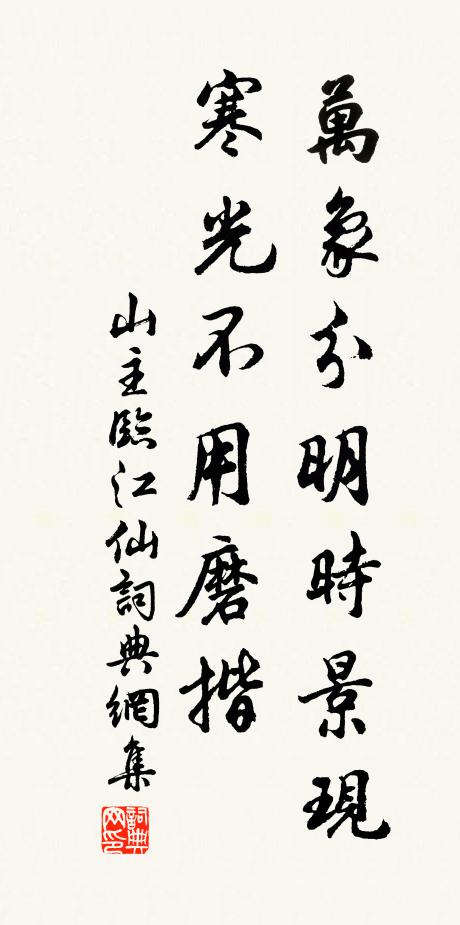 萬象分明時景現
寒光不用磨揩
山主臨江仙詞典網集
詞典網印